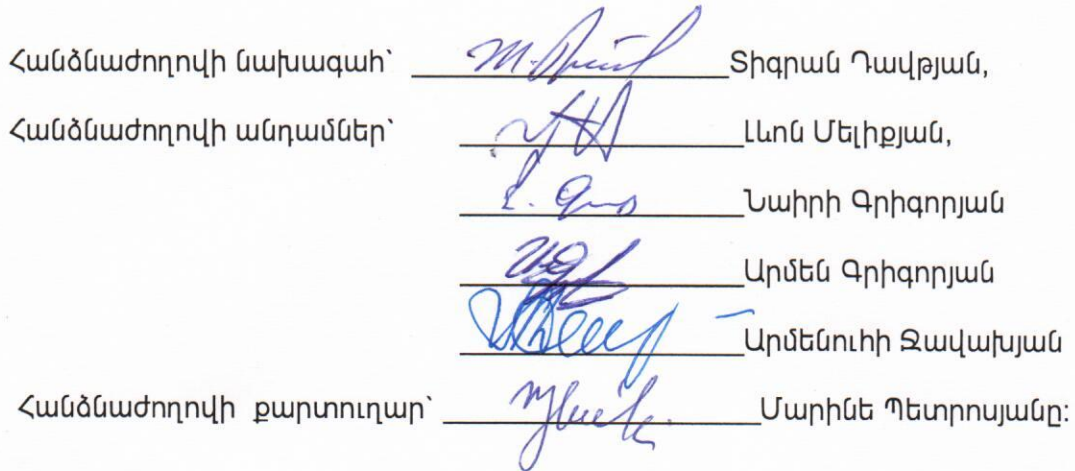 Հանձնաժողովի նախագահ՝ Տիգրան Դավթյան,
Հանձնաժողովի անդամներ՝ Լևոն Մելիքյան,
Նաիրի Գրիգորյան
Արմեն Գրիգորյան
Արմենուհի Ջավախյան
Հանձնաժողովի քարտուղար՝ Մարինե Պետրոսյանը: